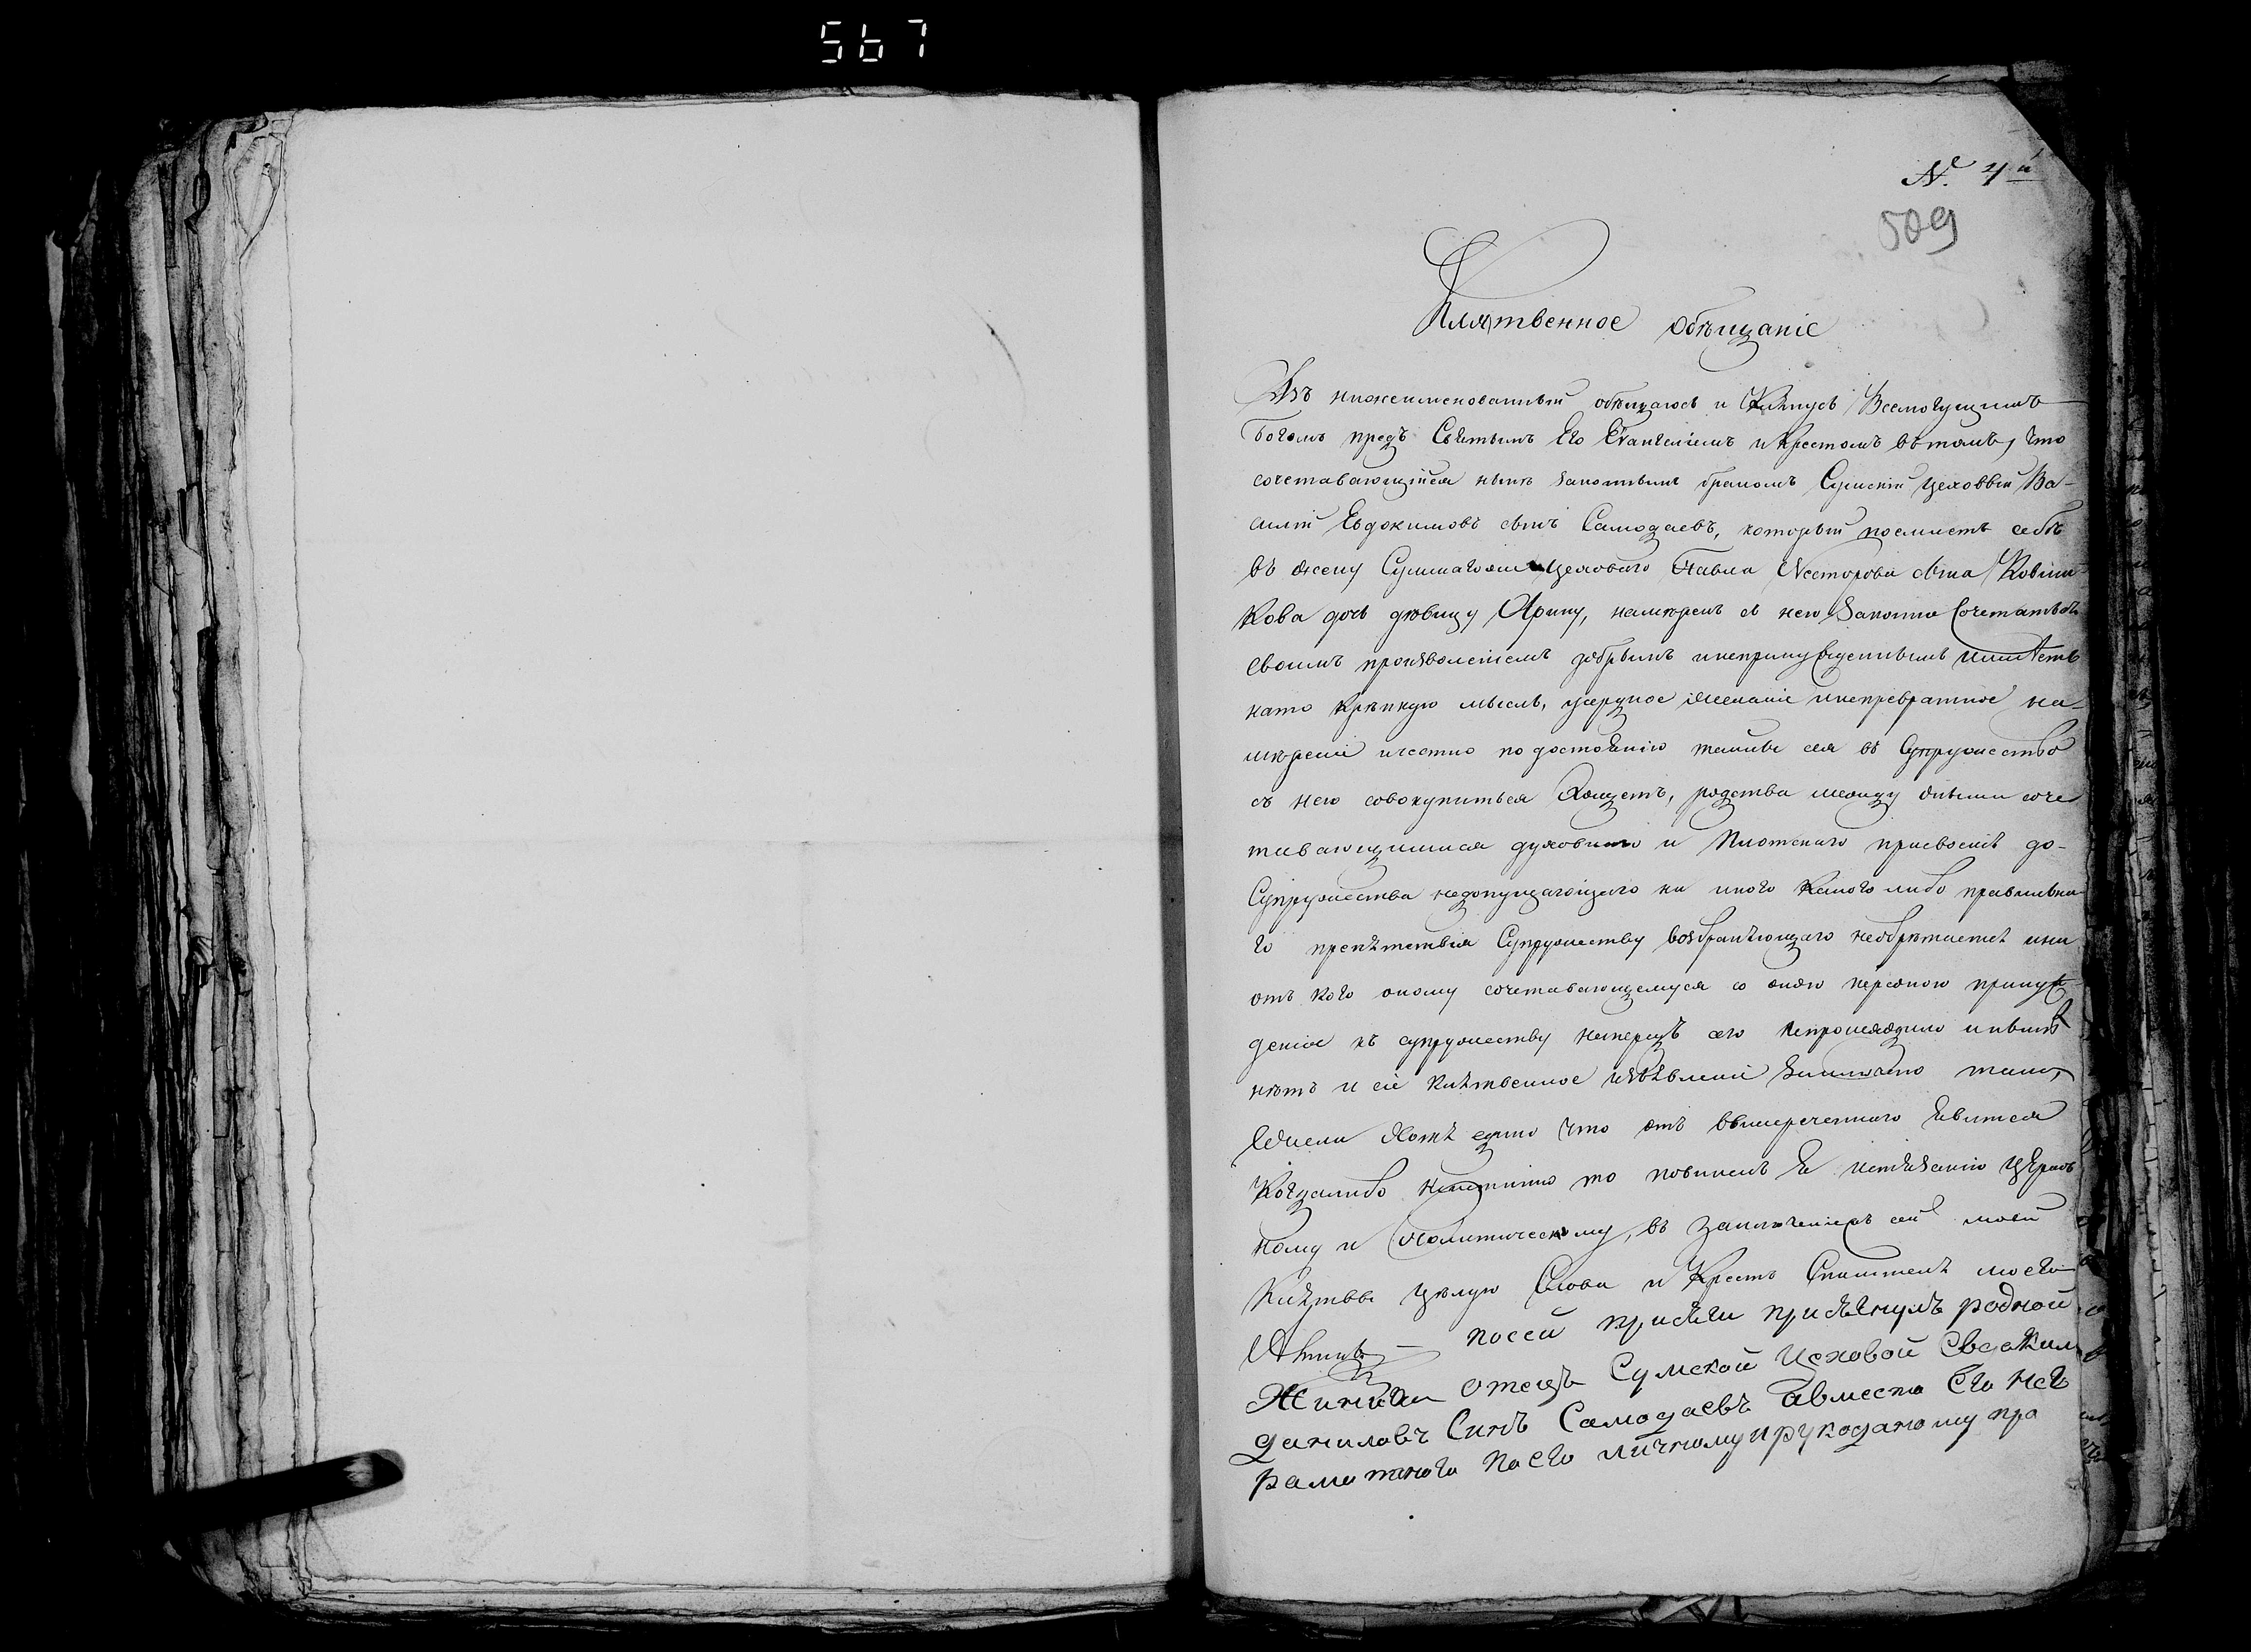 567
№ 4й
509
Клятвенное Обѣщаніе
Азъ нижеименованный обѣщаюсь и Клянусь Всемогущимъ
Богомъ предъ Святымъ Его Евангеліемъ и Крестомъ въ томъ, что
сочетавающійся нынѣ законнымъ бракомъ Сумскій цеховый Ва-
силій Евдокимовъ сынъ Самодаевъ, который поемлетъ себѣ
въ жену Сумскаго цеховаго Павла Нестерова сына
дочь дѣвицу Арину, намѣренъ съ нею Законно Сочетаться
Своимъ произволеніемъ добрымъ и непринужденнымъ имѣетъ
на то крѣпкую мысль, усердное желаніе и непревратное на-
мѣреніе и честно по достоянію тайны сея въ Супружество
съ нею совокупиться хощетъ, родства между оными соче-
тавающимися духовнаго и Плотскаго присвоенія до-
Супружества недопущающаго ни иного Какого либо правильна
го препятствія Супружеству возбраняющаго необрѣтается и ни
отъ кого оному сочетавающемуся со оною персоною принуж-
деніе къ супружеству напередъ сего непроисходило и нынѣ
нѣтъ и сіе клятвенное изъявленіе
хотя едино что отъ вышереченнаго Явится
Когдалибо то повиненъ Я истязанію Церков
ному и Политическому, въ заключеніе сей моей
Клятвы цѣлую Слова и Крестъ Спасителя моего
Аминь — по сей присяги присягнулъ родной
Жениха Отецъ Сумской Цеховой Евдоким
Даниловъ Синъ Самодаевъ авместо Его Нег
рамотного По Его личному и рукоданому про